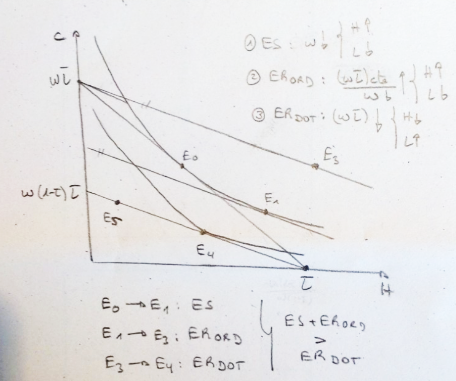 C
① ES : w↓ { H↑ L↓
wL̄
② ERORD : (wL̄)cte / w↓ ↑ { H↑ L↓
③ ERDOT : (wL̄)↓ { H↓ L↑
E0
E3
w(1-τ)L̄
E5
E1
E4
L̄
H
E0 → E1 : ES
E1 → E3 : ERORD
E3 → E4 : ERDOT
ES + ERORD
>
ERDOT